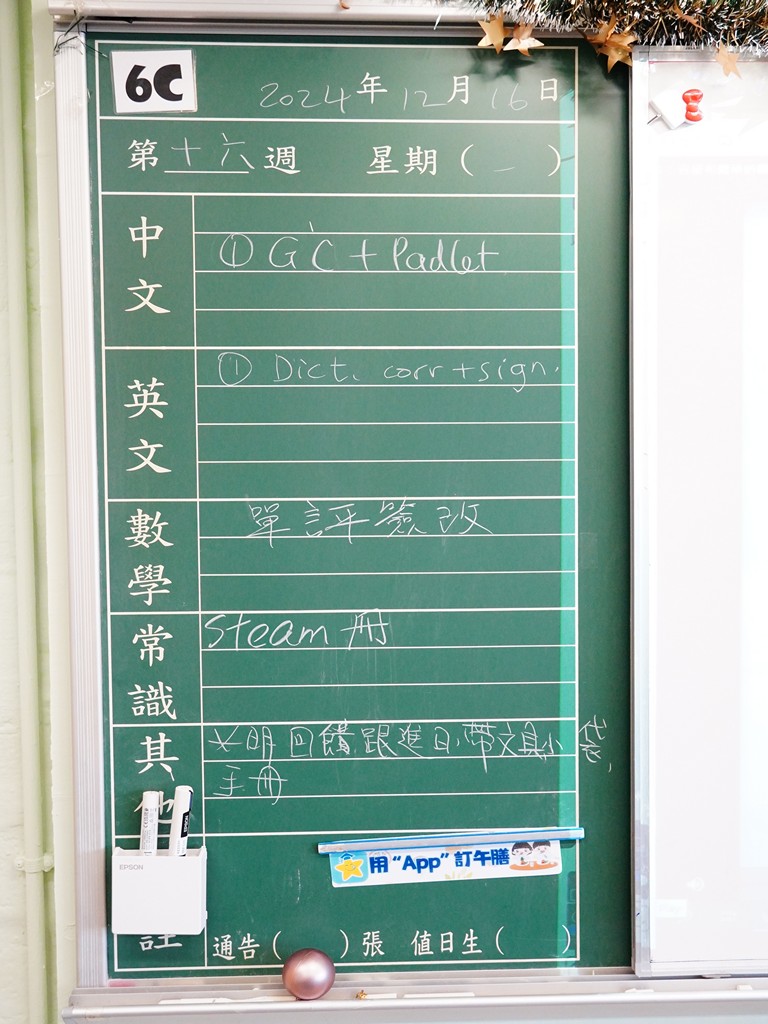 6C
2024年12月16日
第十六週 星期(一)
中文
① GC + Padlet
英文
① Dict. corr + sign.
數學
單評簽改
常識
Steam 冊
其他
*明回饋跟進日,帶文具小袋,
手冊
EPSON
用“App”訂午膳
註
通告( )張 值日生( )